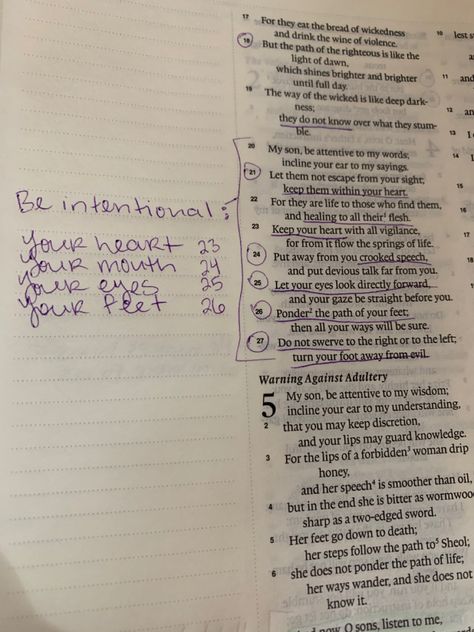 Be intentional:
your heart 23
your mouth 24
your eyes 25
your feet 26
17 For they eat the bread of wickedness
and drink the wine of violence.
18 But the path of the righteous is like the
light of dawn,
which shines brighter and brighter
until full day.
19 The way of the wicked is like deep dark-
ness;
they do not know over what they stum-
ble.
20 My son, be attentive to my words;
incline your ear to my sayings.
21 Let them not escape from your sight;
keep them within your heart.
22 For they are life to those who find them,
and healing to all their¹ flesh.
23 Keep your heart with all vigilance,
for from it flow the springs of life.
24 Put away from you crooked speech,
and put devious talk far from you.
25 Let your eyes look directly forward,
and your gaze be straight before you.
26 Ponder² the path of your feet;
then all your ways will be sure.
27 Do not swerve to the right or to the left;
turn your foot away from evil.
Warning Against Adultery
5 My son, be attentive to my wisdom;
incline your ear to my understanding,
2 that you may keep discretion,
and your lips may guard knowledge.
3 For the lips of a forbidden³ woman drip
honey,
and her speech⁴ is smoother than oil,
4 but in the end she is bitter as wormwoo
sharp as a two-edged sword.
5 Her feet go down to death;
her steps follow the path to⁵ Sheol;
6 she does not ponder the path of life;
her ways wander, and she does not
know it.
now, O sons, listen to me,
10 lest s
11 and
12 an
13
14
15
16
17
18